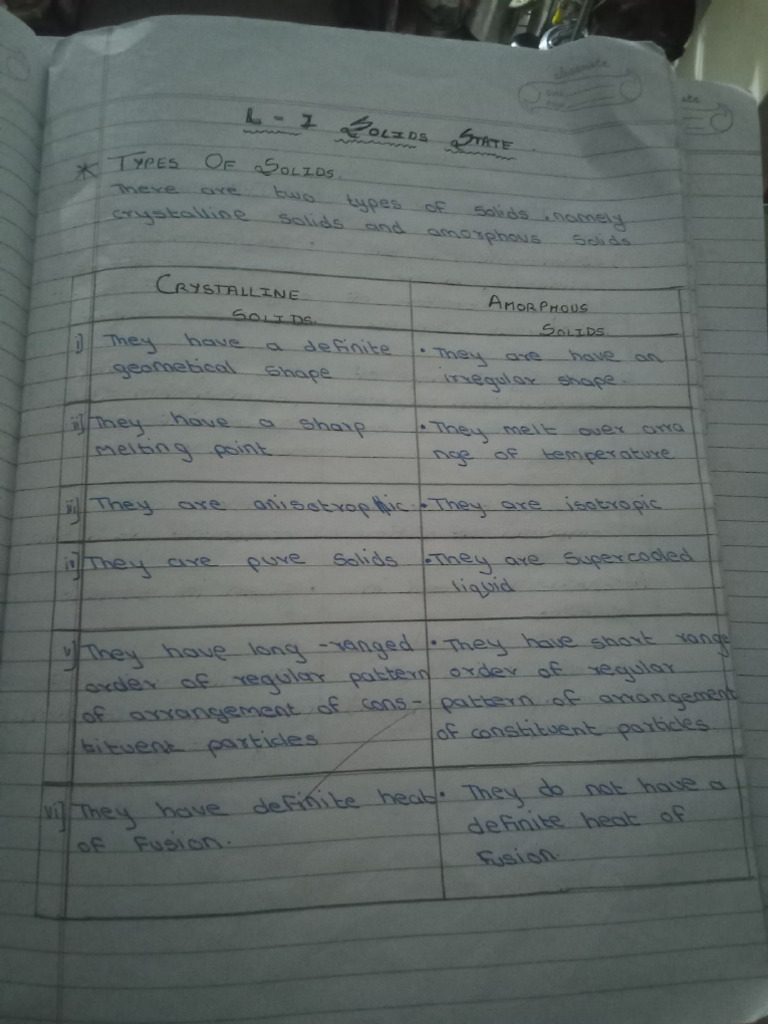 L - 1 SOLIDS STATE.
* TYPES OF SOLIDS.
There are two types of solids, namely
crystalline solids and amorphous solids
CRYSTALLINE
SOLIDS.
AMORPHOUS
SOLIDS.
i) They have a definite
geometical shape
• They are have an
irregular shape.
ii] They have a sharp
melting point
• They melt over arra
nge of temperature
iii] They are anisotropic
• They are isotropic
iv] They are pure solids
• They are Supercooled
liquid
v] They have long -ranged
order of regular pattern
of arrangement of cons-
tituent particles
• They have short range
order of regular
pattern of arrangement
of constituent particles
vi] They have definite heat
of fusion.
• They do not have a
definite heat of
fusion.